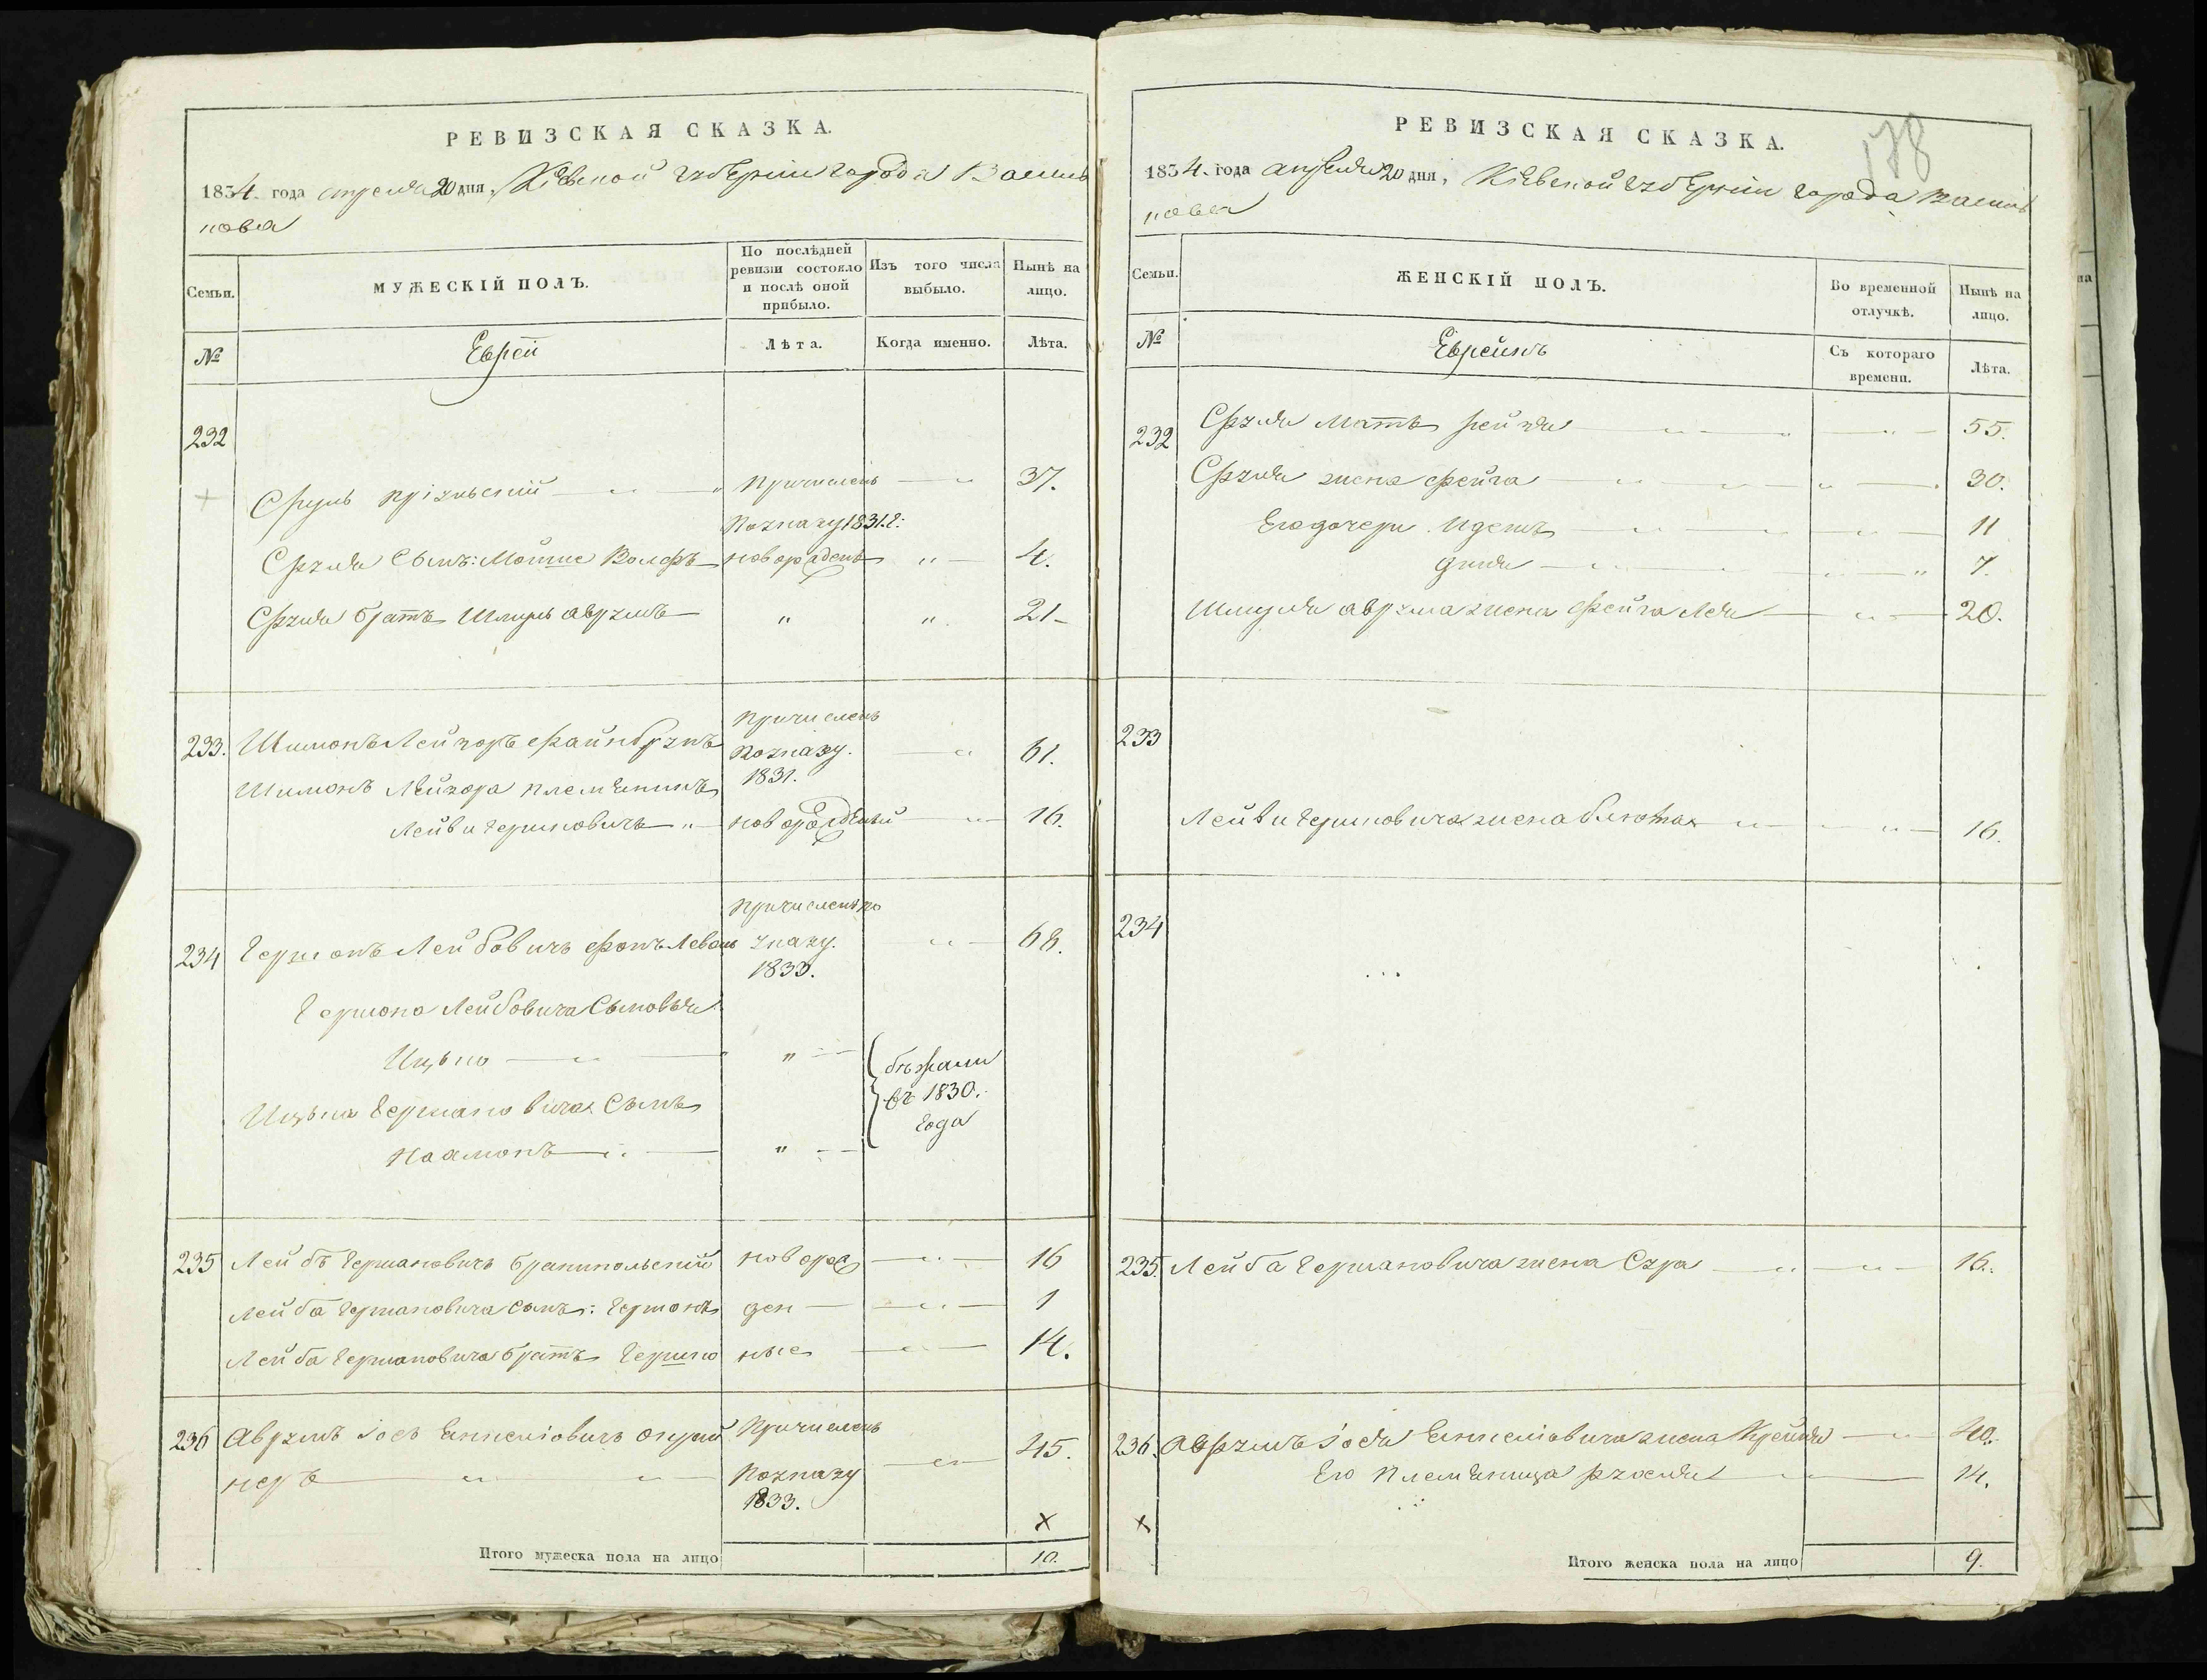 РЕВИЗСКАЯ СКАЗКА.
1834. года апреля 20 дня, Кіевской губерніи города Василь
кова
Семьи.
МУЖЕСКІЙ ПОЛЪ.
По послѣдней ревизіи состояло и послѣ оной прибыло.
Изъ того числа выбыло.
Нынѣ на лицо.
№
Еврей
Лѣта.
Когда именно.
Лѣта.
232
Сруль " причисленъ " 37.
по указу 1831. г:
Сруля Сынъ: Мошие Волфъ новорожденъ " 4.
Сруля братъ Шмуль аврумъ " " 21
233. Шимонъ Лейзоръ файнбрунъ причисленъ
по указу. " 61.
1831.
Шимонъ Лейзора племѣникъ
Лейви Гершковичъ " новорожденый " 16.
234 Гершонъ Лейбовичъ причисленъ по
указу. " 68.
1833.
Гершона Лейбовича Сыновья
Ицько " " бѣжали
въ 1830.
года
Ицька Гершановича Сынъ
"
235 Лейбъ Гершановичъ новорож " 16
Лейба Гершановича сынъ: Гершонъ ден " 1
Лейба Гершановича братъ Гершко ные " 14.
236 Аврумъ Іосъ причисленъ
неръ " " по указу " 45.
1833.
x
Итого мужеска пола на лицо 10.
178
РЕВИЗСКАЯ СКАЗКА.
1834. года апреля 20 дня, Кіевской губерніи города Василь
кова
Семьи.
ЖЕНСКІЙ ПОЛЪ.
Во временной отлучкѣ.
Нынѣ на лицо.
№
Евреинъ
Съ котораго времени.
Лѣта.
232 Сруля Мать рейзя " " " 55.
Сруля жена фейга " " " 30.
Его дочери " " " 11
" " " 7.
Шмуля аврума жена фейга Лея " 20.
233
Лейви Гершковича жена блюма " " 16.
234
235. Лейба Гершановича жена Сура " " 16.
236. Аврумъ Іося жена Крейня " 40.
Его племѣница " 14.
x
Итого женска пола на лицо 9.